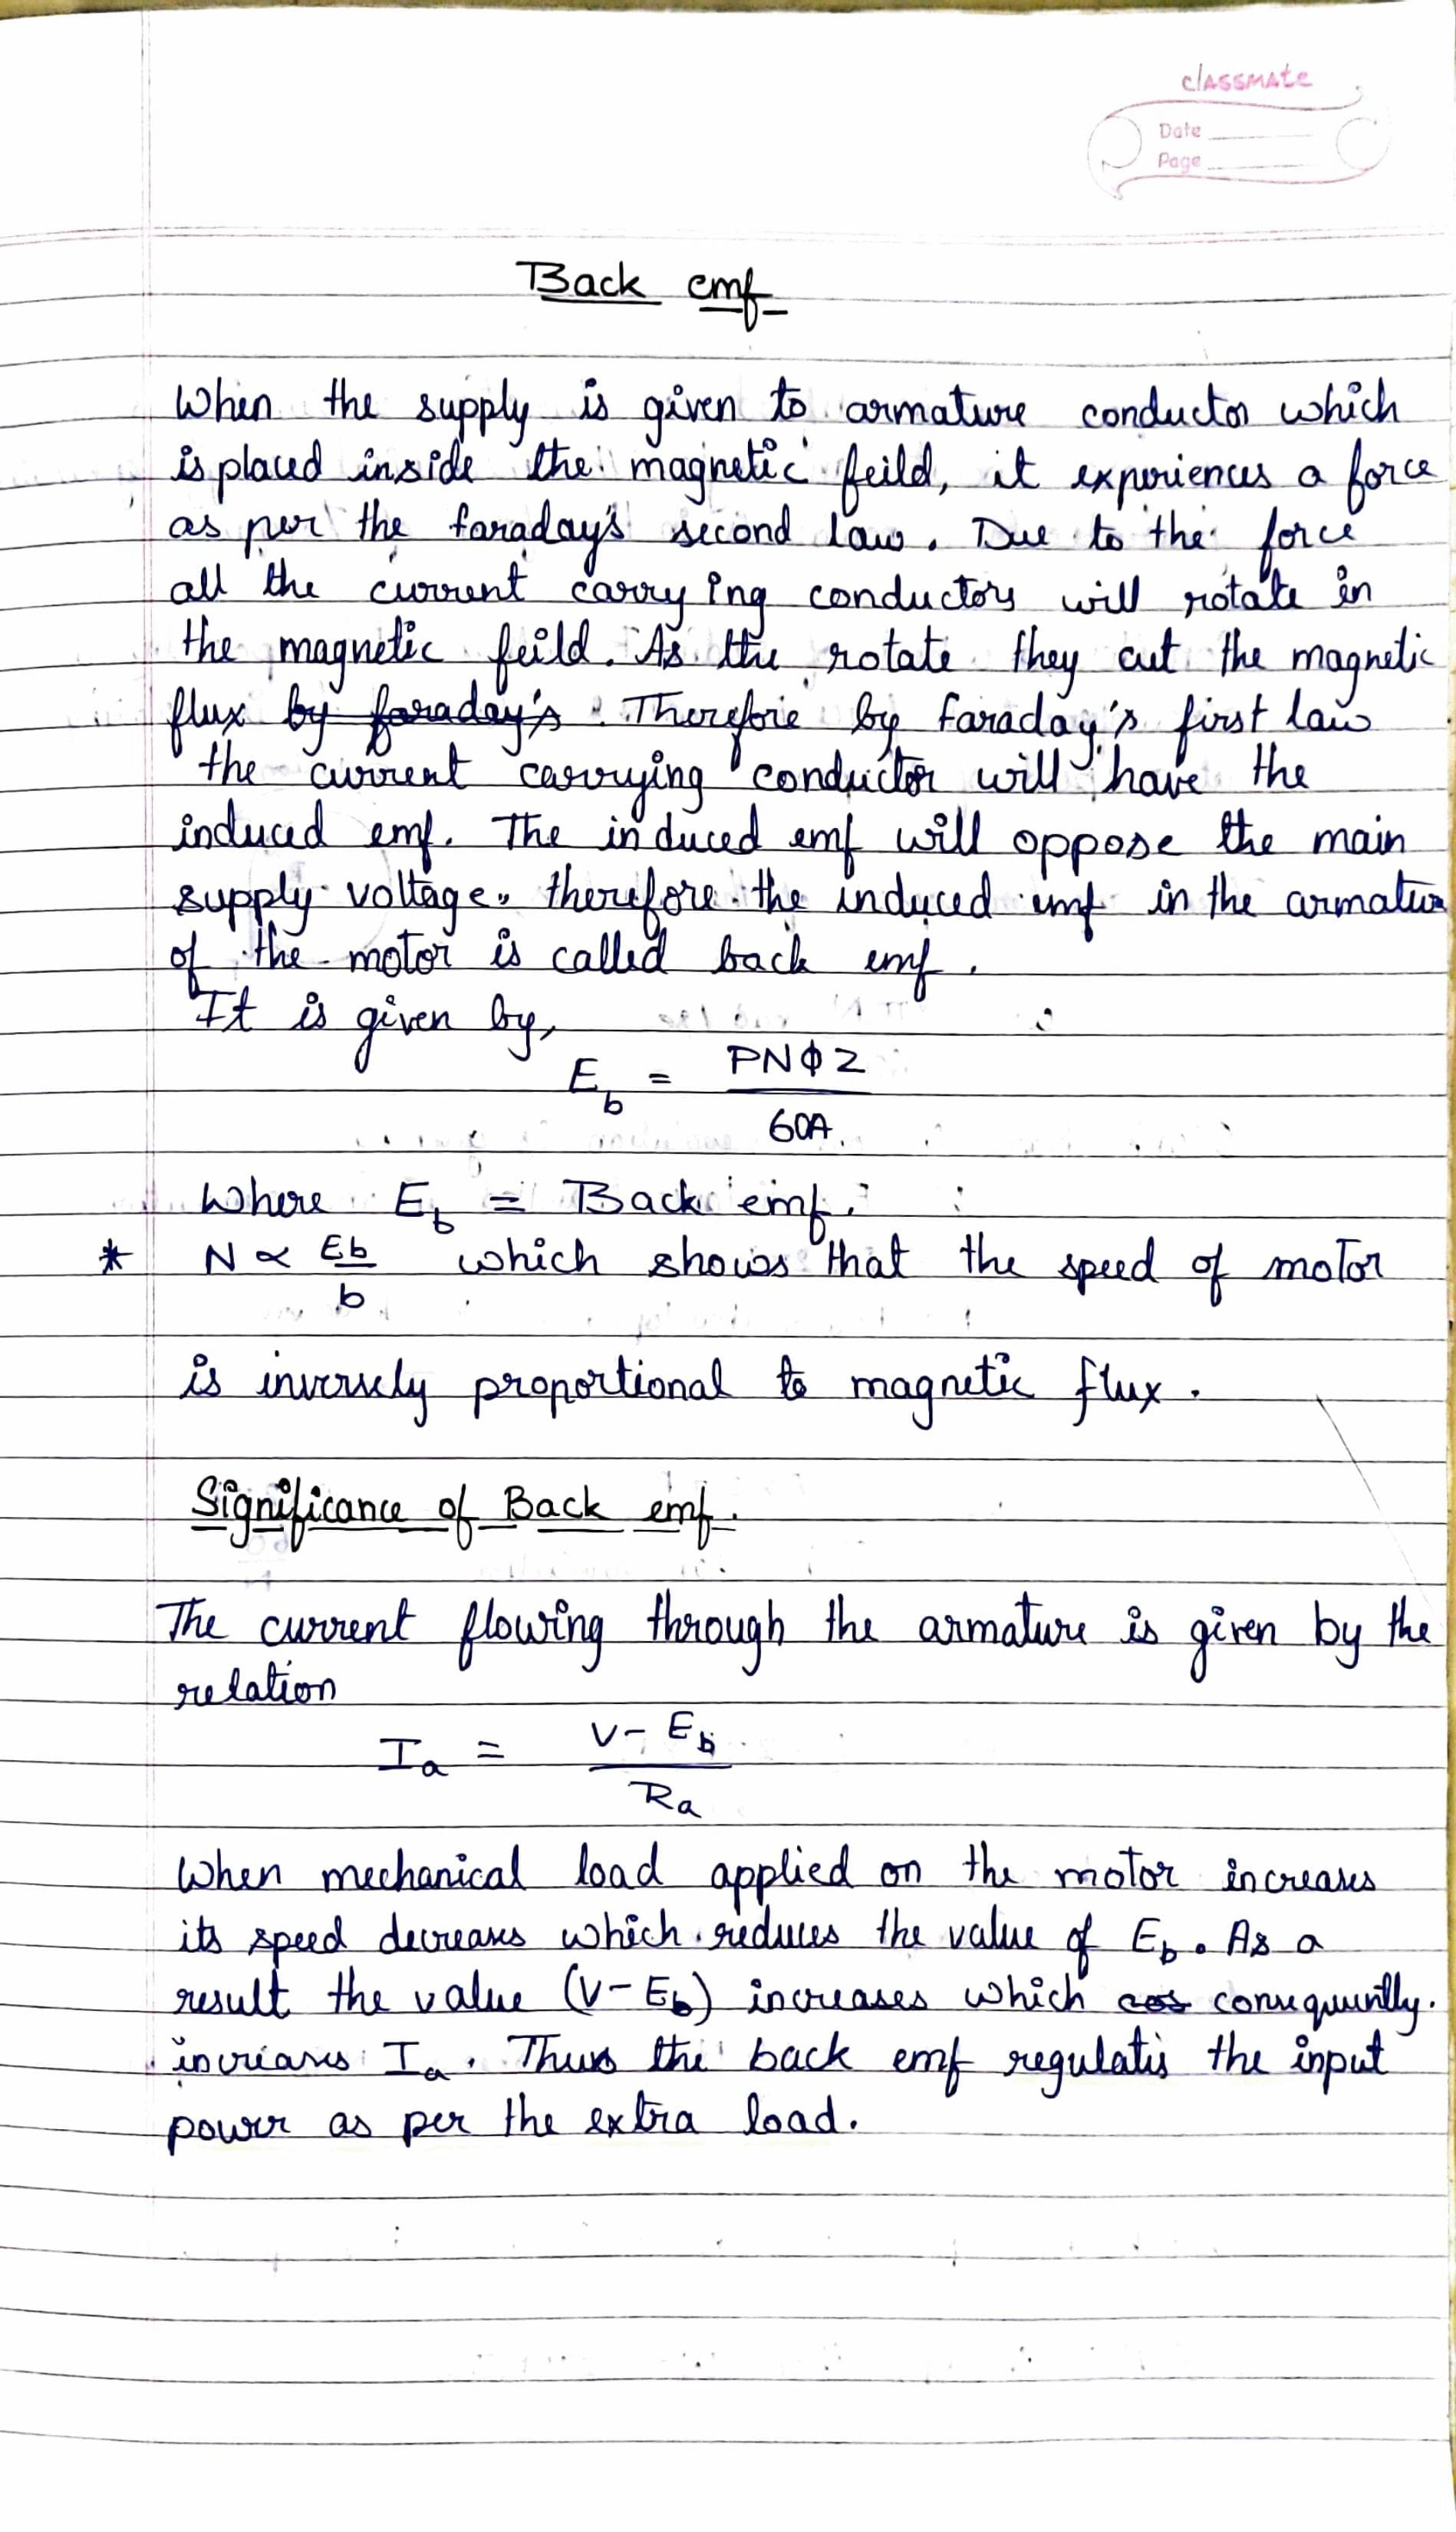 classmate
Date
Page
Back emf
When the supply is given to armature conductor which
is placed inside the magnetic feild, it experiences a force
as per the faraday's second law. Due to the force
all the current carrying conductors will rotate in
the magnetic feild. As the rotate they cut the magnetic
flux by faraday's. Therefore by Faraday's first law
the current carrying conductor will have the
induced emf. The induced emf will oppose the main
supply voltage. therefore the induced emf in the armature
of the motor is called back emf.
It is given by,
E_b = PNΦZ / 60A
Where E_b = Back emf.
* N ∝ Eb / b which shows that the speed of motor
is inversely proportional to magnetic flux.
Significance of Back emf.
The current flowing through the armature is given by the
relation
I_a = V - E_b / Ra
When mechanical load applied on the motor increases
its speed decreases which reduces the value of E_b. As a
result the value (V-E_b) increases which cos consequently
increases I_a. Thus the back emf regulates the input
power as per the extra load.